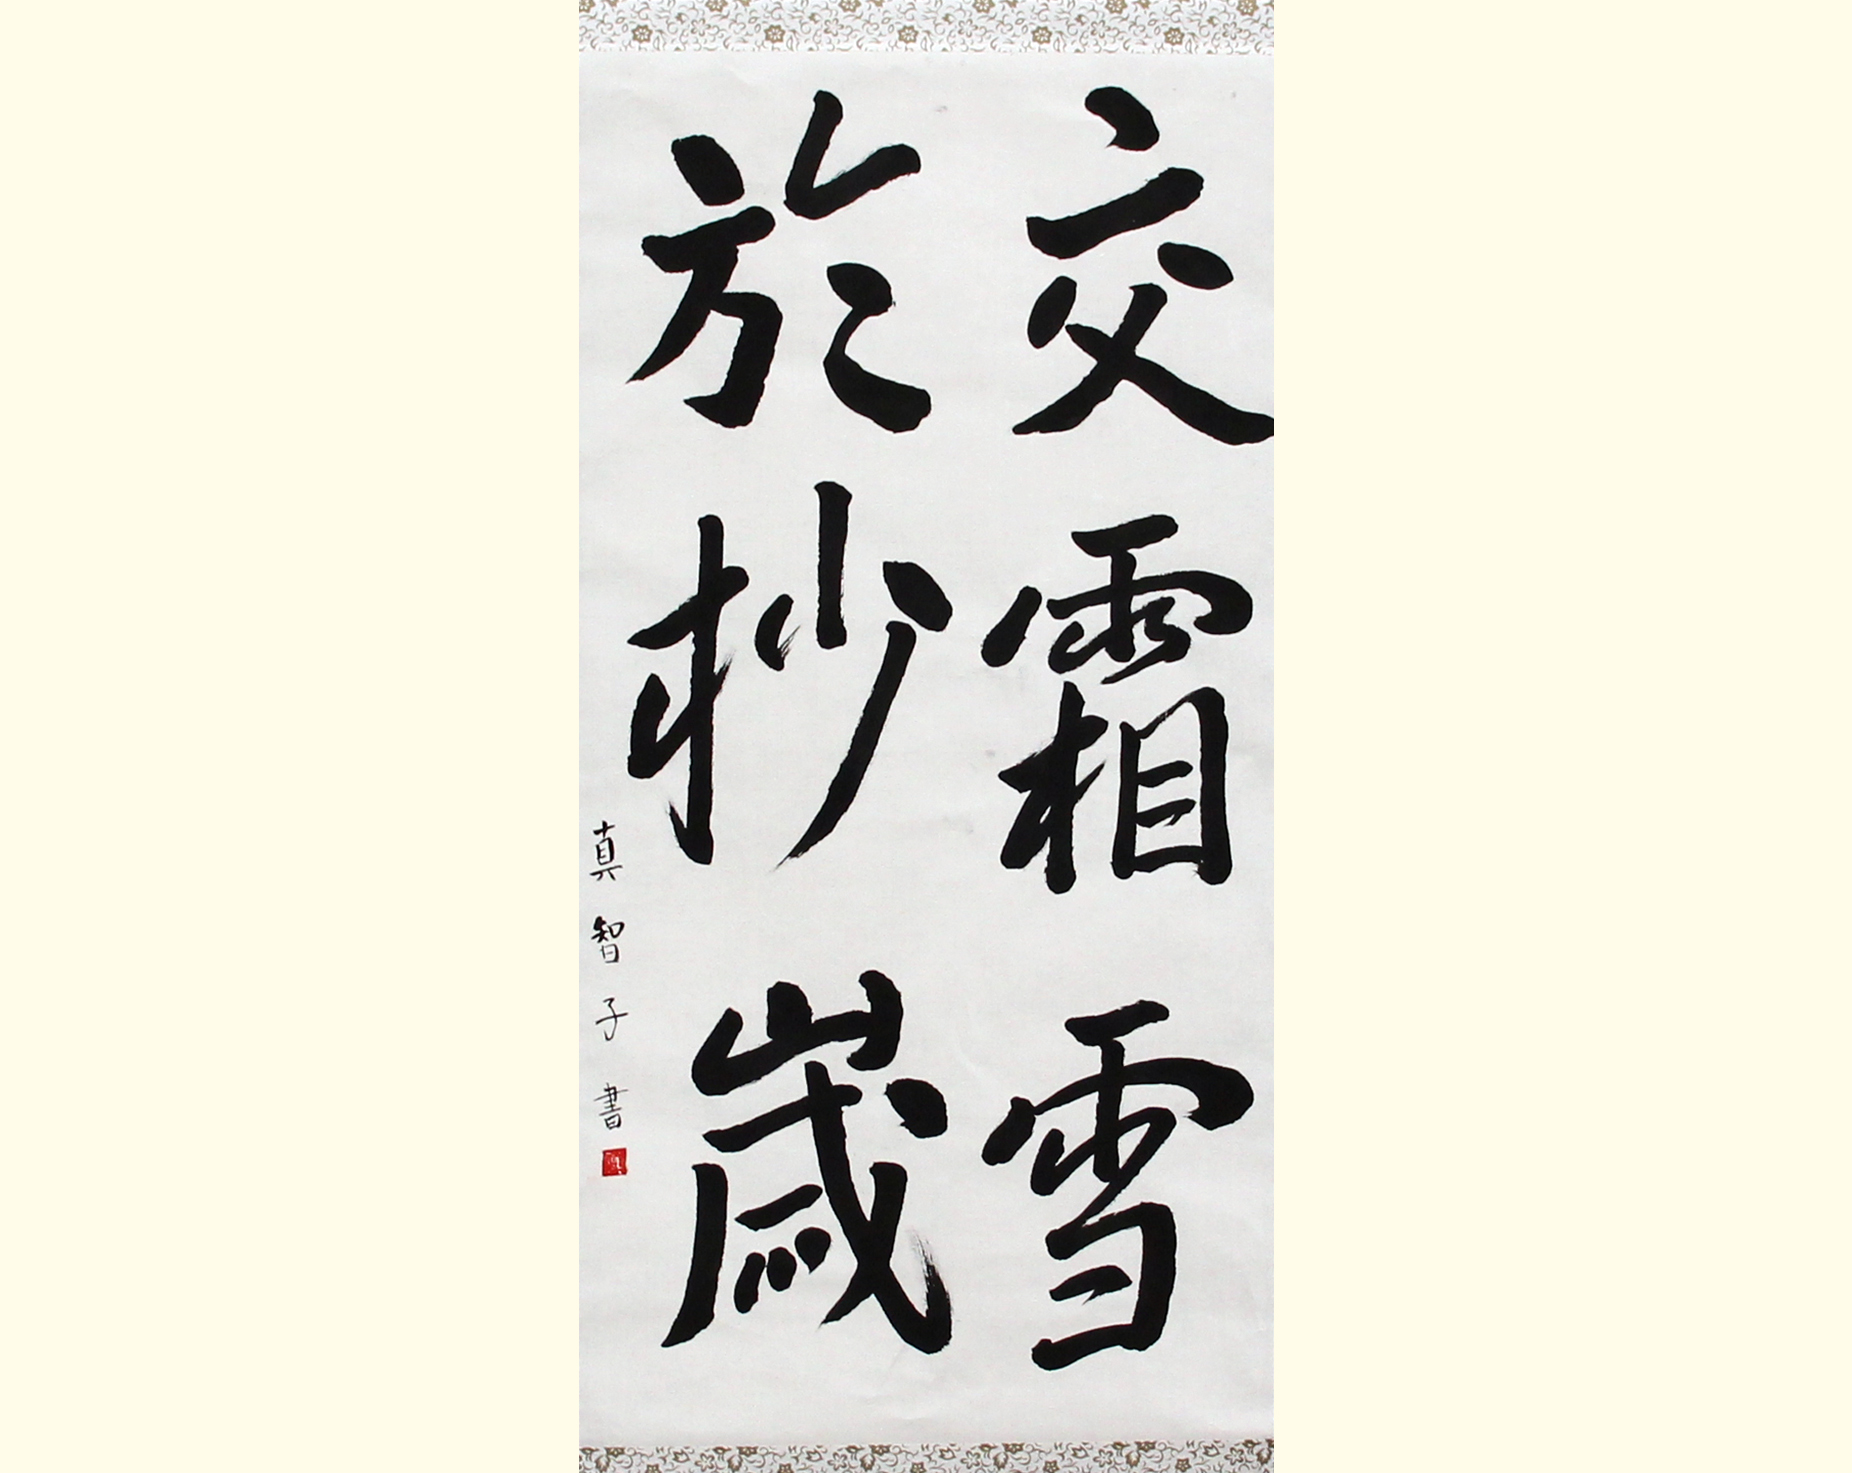 交霜雪
於杪歳
真智子書